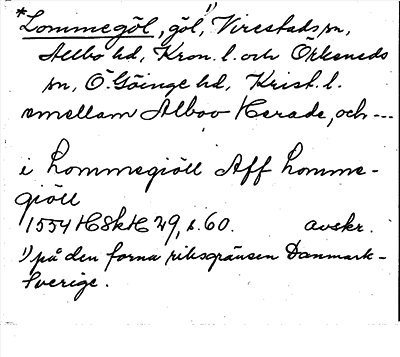 *Lommegöl, göl,¹⁾ Virestads sn,
Allbo hd, Kron. l. och Örkeneds
sn, Ö. Göinge hd, Krist. l.
emellam Alboo Herade, och ---
i Lommegiöll Aff Lomme-
giöll
1554 HSkH 29, s. 60. avskr.
¹⁾ på den forna riksgränsen Danmark-
Sverige.